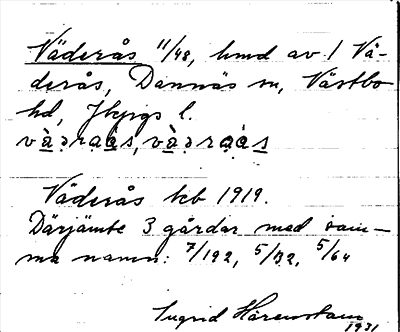 Väderås 11/48, hmd av / Vä-
derås, Dannäs sn, Västbo
hd, Jkpgs l.
Väderås kcb 1919.
Därjämte 3 gårdar med sam-
ma namn: 7/192, 5/32, 5/64
Ingrid Härenstam
1931